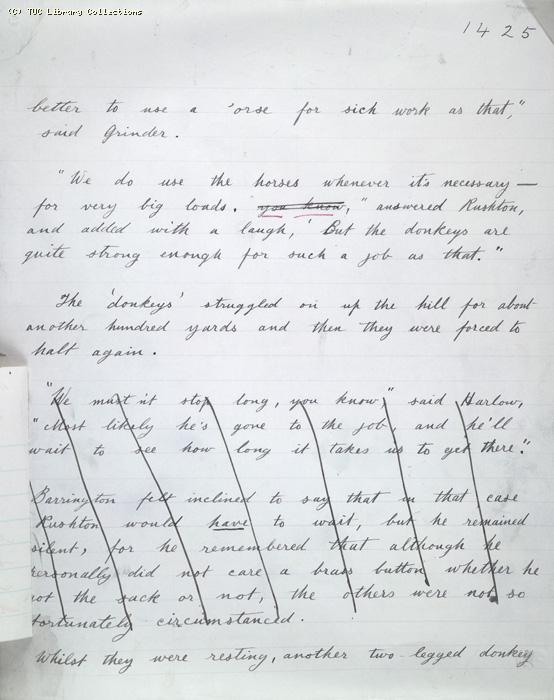 (C) TUC Library Collections
1425
better to use a 'orse for sich work as that,"
said Grinder.
"We do use the horses whenever it's necessary —
for very big loads. you know," answered Rushton,
and added with a laugh, 'But the donkeys are
quite strong enough for such a job as that."
The 'donkeys' struggled on up the hill for about
another hundred yards and then they were forced to
halt again.
"We must'nt stop long, you know," said Harlow,
"Most likely he's gone to the job, and he'll
wait to see how long it takes us to get there."
Barrington felt inclined to say that in that case
Rushton would have to wait, but he remained
silent, for he remembered that although he
personally did not care a brass button whether he
got the sack or not, the others were not so
fortunately circumstanced.
Whilst they were resting, another two-legged donkey